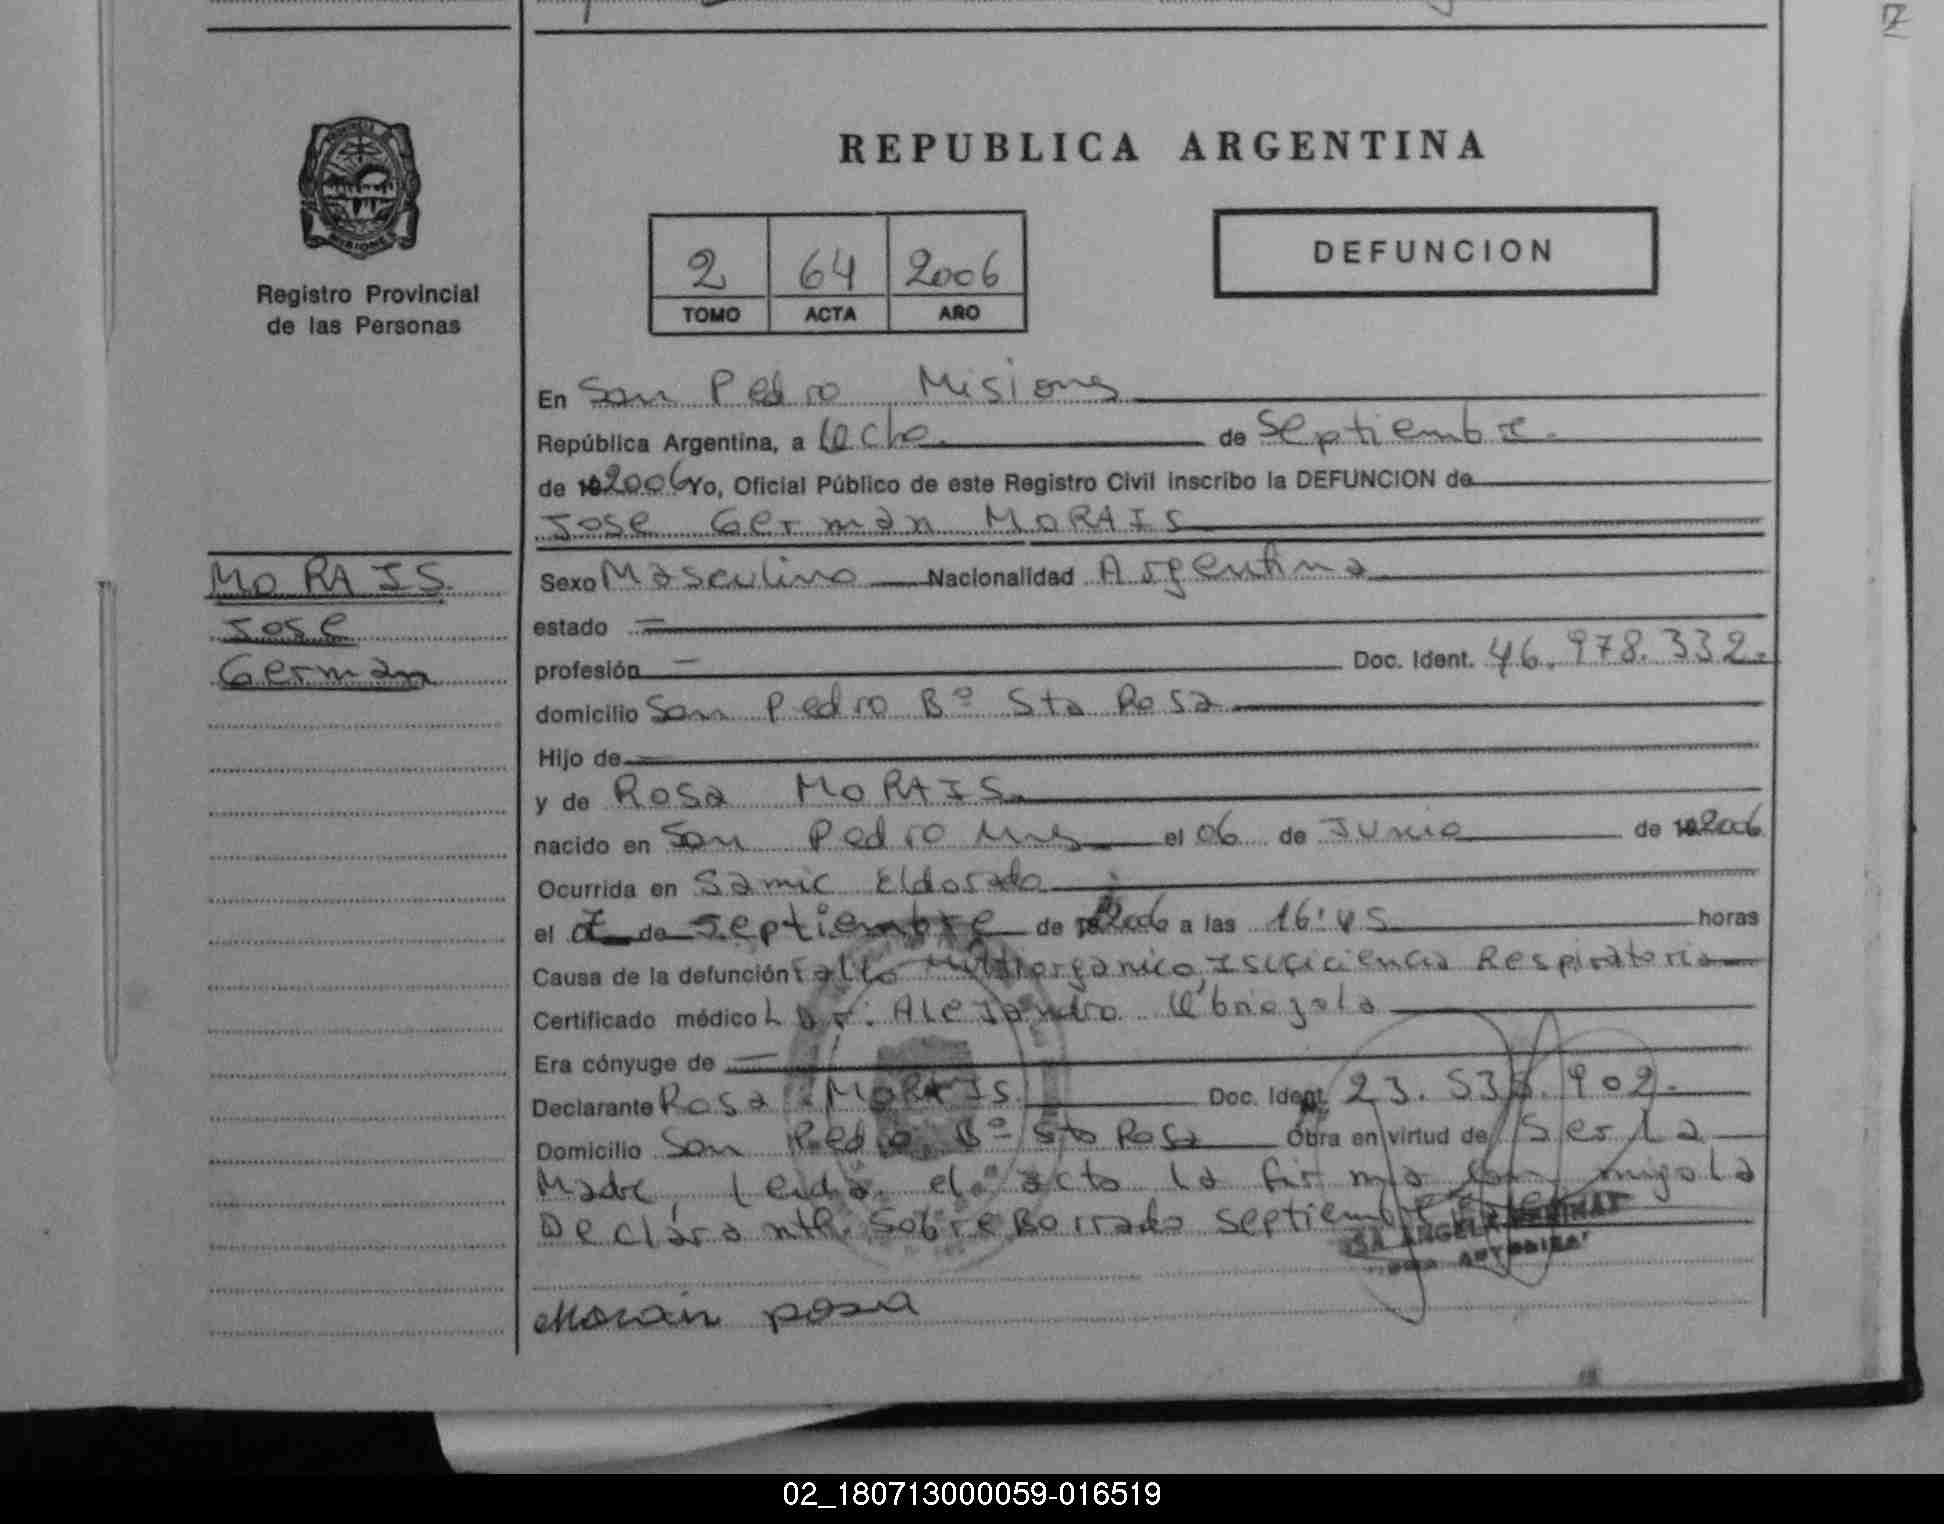 REPUBLICA ARGENTINA
PROVINCIA DE MISIONES
Registro Provincial
de las Personas
2 64 2006
TOMO ACTA AÑO
DEFUNCION
En San Pedro Misiones
República Argentina, a Ocho de Septiembre
de 192006 Yo, Oficial Público de este Registro Civil inscribo la DEFUNCION de
Jose German MORAIS
MORAIS
Jose
German
Sexo Masculino Nacionalidad Argentina
estado —
profesión — Doc. Ident. 46.978.332.
domicilio San Pedro Bº Sta Rosa
Hijo de —
y de Rosa MORAIS
nacido en San Pedro Mns el 06 de Junio de 192006
Ocurrida en Samic Eldorado
el 7 de Septiembre de 2006 a las 16:45 horas
Causa de la defunción Fallo Multiorganico, Respiratoria
Certificado médico Dr. Alejandro
Era cónyuge de —
Declarante Rosa MORAIS Doc. Ident. 23. 902.
Domicilio San Pedro Bº Sta Rosa Obra en virtud de Ser La
Madre, Leida el acto la firma
Declarante. Sobre Borrado Septiembre
Morais Rosa
02_180713000059-016519